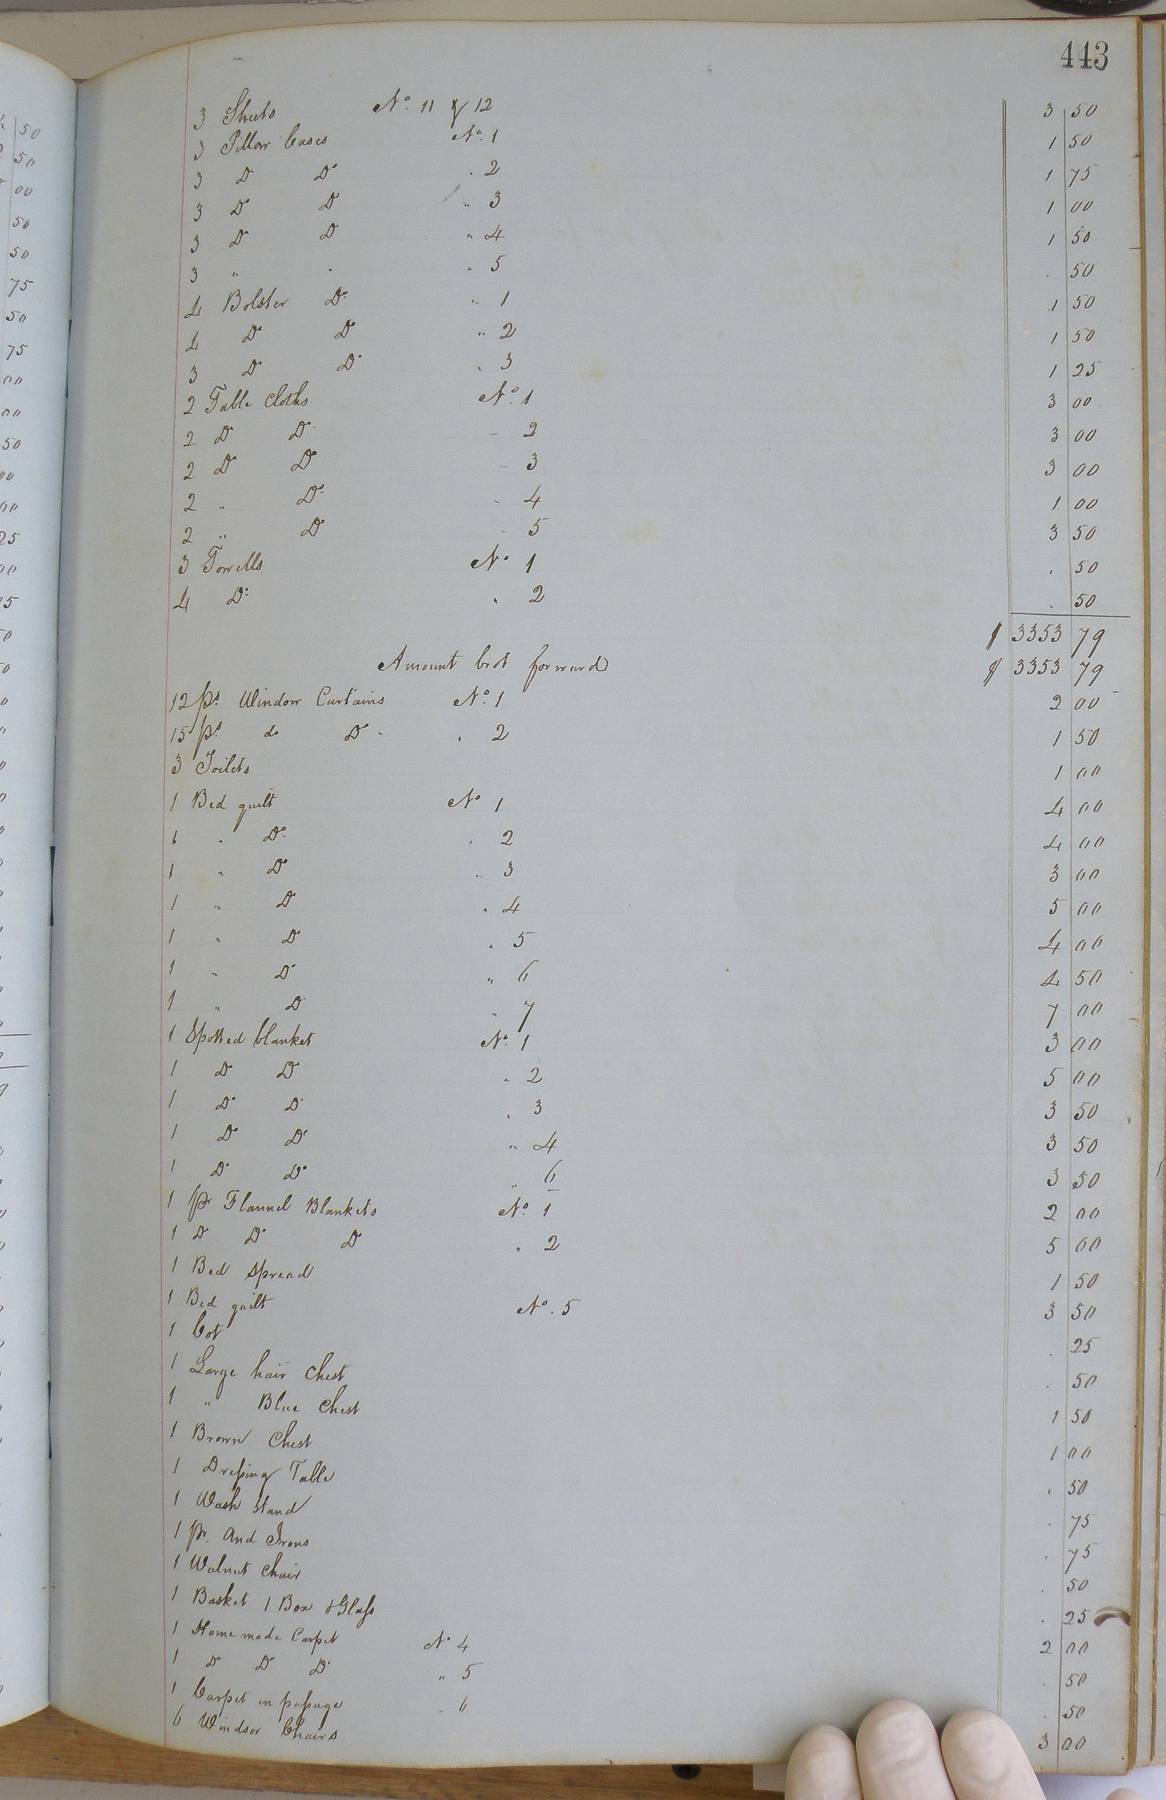 443
3 Sheets No. 11 & 12 3 50
3 Pillow Cases No. 1 1 50
3 Do Do . 2 1 75
3 Do Do " 3 1 00
3 Do Do " 4 1 50
3 " . . 5 . 50
4 Bolster Do " 1 1 50
4 Do Do " 2 1 50
3 Do Do . 3 1 25
2 Table Cloths No. 1 3 00
2 Do Do - 2 3 00
2 Do Do - 3 3 00
2 . Do . 4 1 00
2 " Do . 5 3 50
3 Towells No 1 . 50
4 Do . 2 . 50
$ 3353 79
Amount brot forward $ 3353 79
12 ps. Window Curtains No. 1 2 00
15 ps do Do . 2 1 50
3 Toilets 1 00
1 Bed quilt No 1 4 00
1 . Do . 2 4 00
1 " Do " 3 3 00
1 " Do " 4 5 00
1 " Do . 5 4 00
1 " Do " 6 4 50
1 " Do " 7 7 00
1 Spotted blanket No. 1 3 00
1 Do Do . 2 5 00
1 Do Do . 3 3 50
1 Do Do " 4 3 50
1 Do Do " 6 3 50
1 pr Flannel Blankets No. 1 2 00
1 Do Do Do . 2 5 00
1 Bed Spread 1 50
1 Bed quilt No. 5 3 50
1 Cot . 25
1 Large hair Chest . 50
1 " Blue Chest 1 50
1 Brown Chest 1 00
1 Dressing Table . 50
1 Wash Stand . 75
1 pr. And Irons . 75
1 Walnut Chair . 50
1 Basket 1 Box & Glass . 25
1 Home made Carpet No 4 2 00
1 Do Do Do " 5 . 50
1 Carpet in passage . 6 . 50
6 Windsor Chairs 3 00